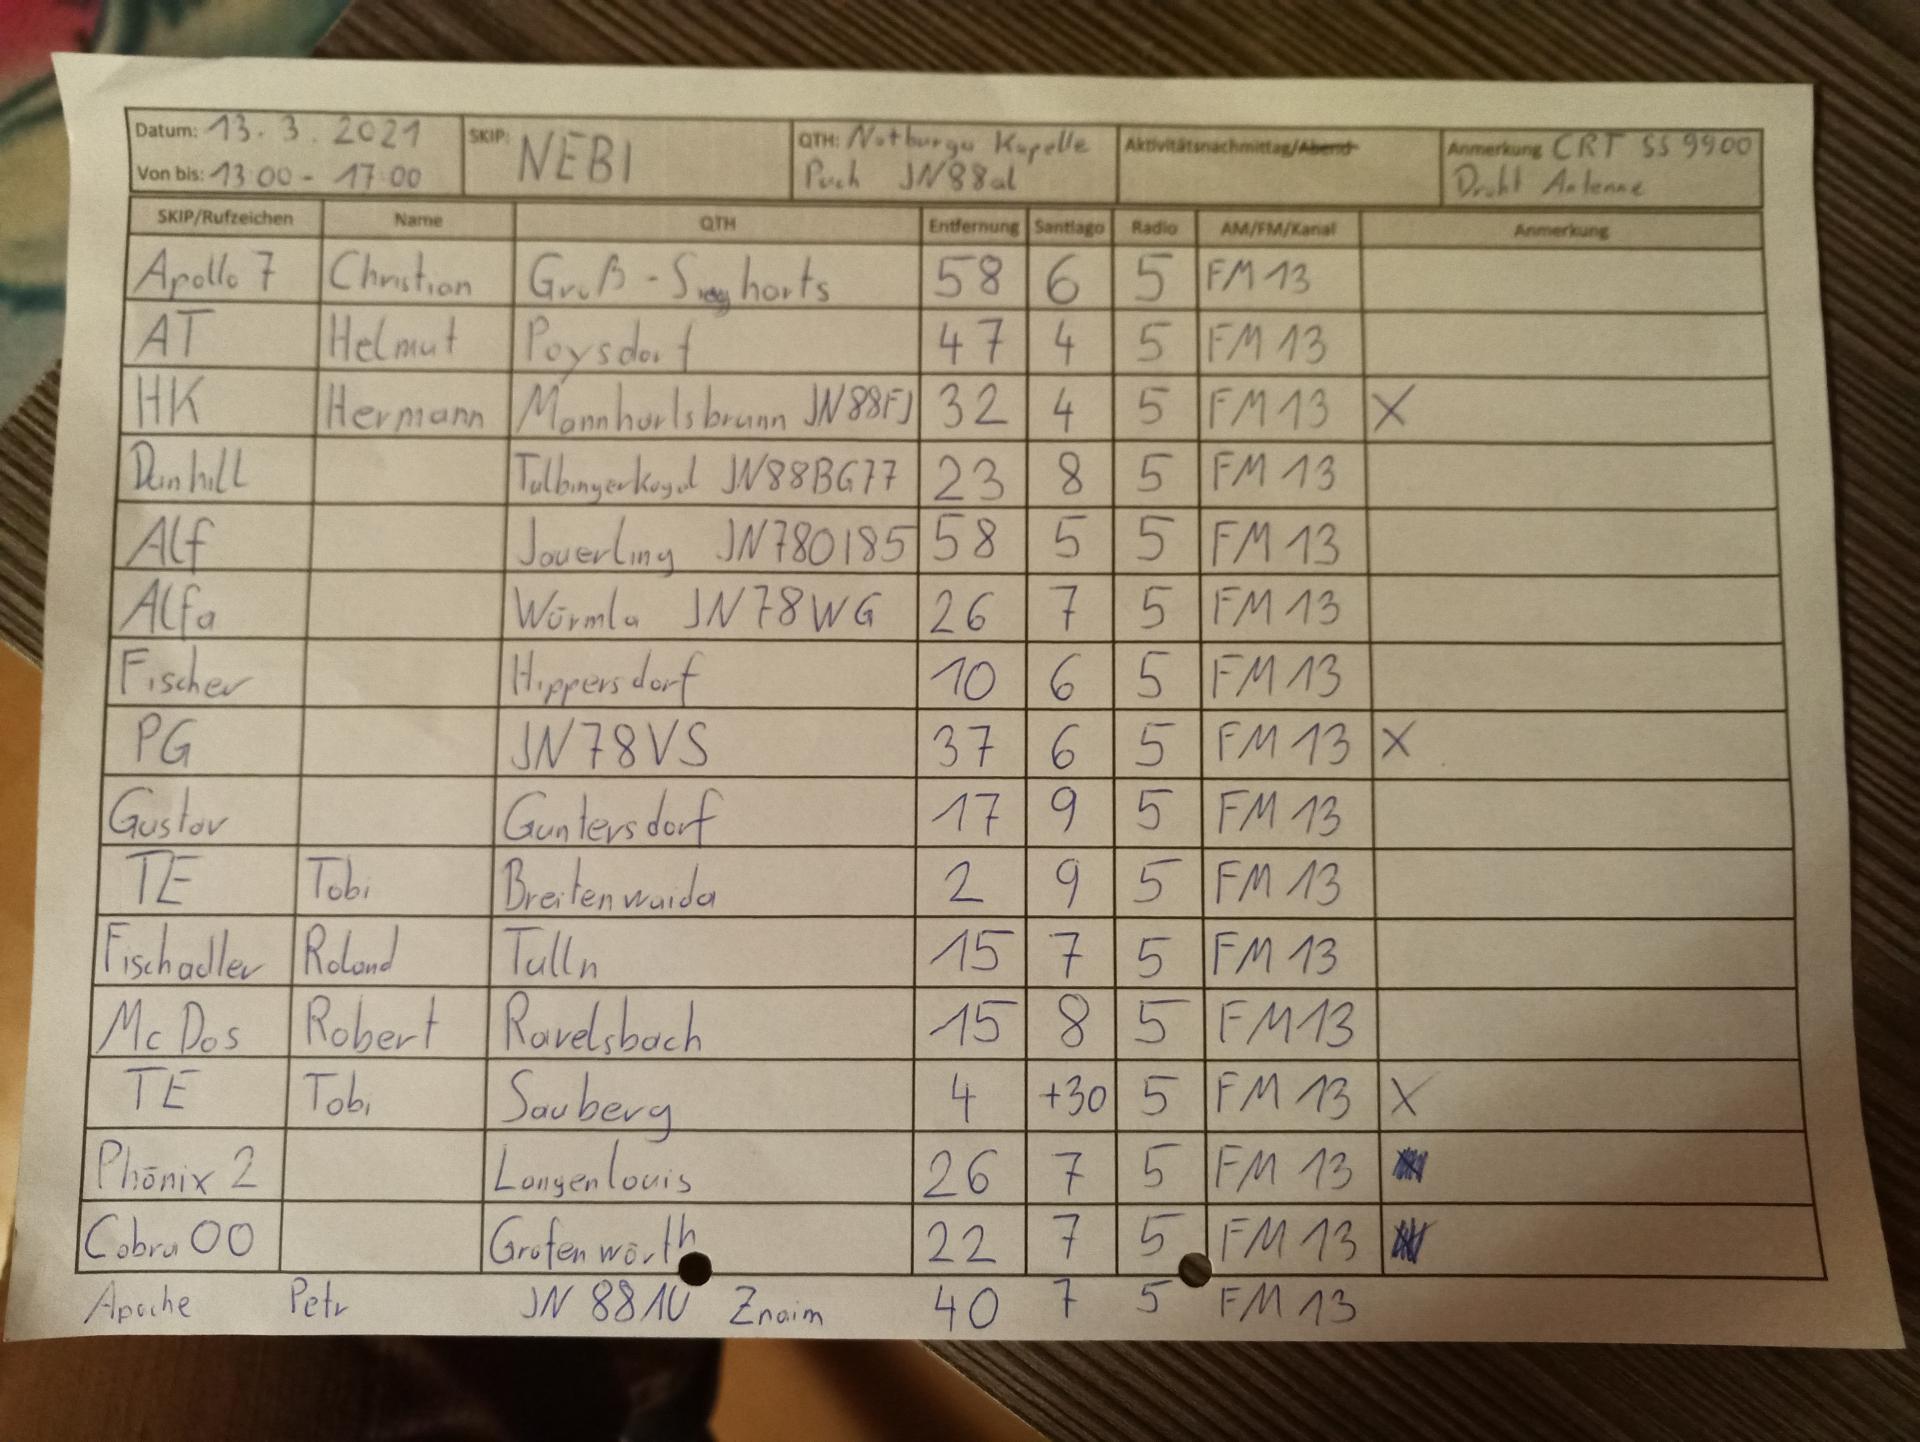 Datum: 13.3.2021 SKIP: NEBI QTH: Notburga Kapelle Aktivitätsnachmittag/Abend Anmerkung CRT SS 9900
Von bis: 13:00 - 17:00 Puch JN88al Draht Antenne
SKIP/Rufzeichen Name QTH Entfernung Santiago Radio AM/FM/Kanal Anmerkung
Apollo 7 Christian Groß-Siegharts 58 6 5 FM 13
AT Helmut Poysdorf 47 4 5 FM 13
HK Hermann Mannhartsbrunn JN88FJ 32 4 5 FM 13 X
Dunhill Tulbingerkogel JN88BG77 23 8 5 FM 13
Alf Jauerling JN78OI85 58 5 5 FM 13
Alfa Würmla JN78WG 26 7 5 FM 13
Fischer Hippersdorf 10 6 5 FM 13
PG JN78VS 37 6 5 FM 13 X
Gustav Guntersdorf 17 9 5 FM 13
TE Tobi Breitenwaida 2 9 5 FM 13
Fischadler Roland Tulln 15 7 5 FM 13
Mc Dos Robert Ravelsbach 15 8 5 FM 13
TE Tobi Sauberg 4 +30 5 FM 13 X
Phönix 2 Langenlouis 26 7 5 FM 13
Cobra 00 Grafenwörth 22 7 5 FM 13
Apache Petr JN 881U Znaim 40 7 5 FM 13